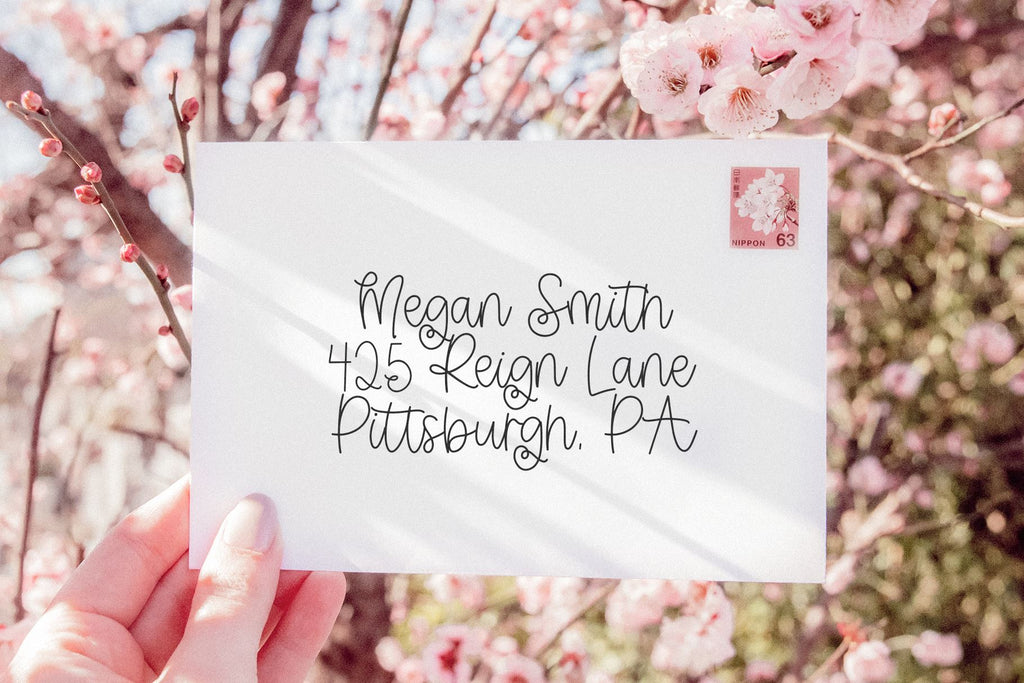 日本郵便
NIPPON 63
Megan Smith
425 Reign Lane
Pittsburgh, PA